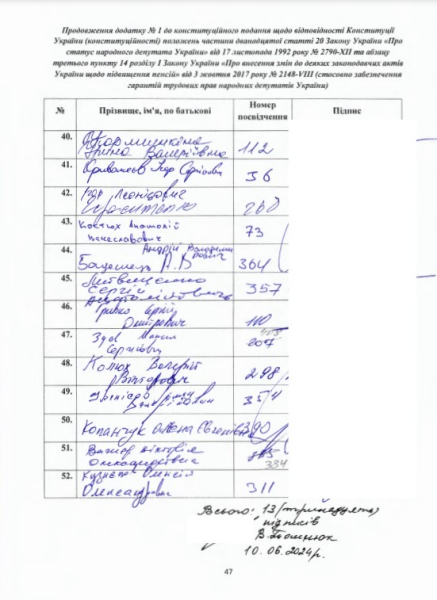 Продовження додатку № 1 до конституційного подання щодо відповідності Конституції
України (конституційності) положень частини дванадцятої статті 20 Закону України «Про
статус народного депутата України» від 17 листопада 1992 року № 2790-XII та абзацу
третього пункту 14 розділу I Закону України «Про внесення змін до деяких законодавчих актів
України щодо підвищення пенсій» від 3 жовтня 2017 року № 2148-VIII (стосовно забезпечення
гарантій трудових прав народних депутатів України)
№ Прізвище, ім'я, по батькові Номер посвідчення Підпис
40.
Ірина Валеріївна 112
41.
Ігор Сергійович 56
42.
Ігор Леонідович
43.
Костюх Анатолій
Вячеславович 73
44.
Андрій Володими
рович
364
45.
Литвиненко
Сергій
Анатолійович 357
46.
Гривко Сергій
Дмитрович 110
47.
Зуєв Максим
Сергійович
48.
Колюх Валерій
Вікторович 298
49.
354
50.
Копанчук Олена Євгеніївна 390
51.
Вагнєр Вікторія
Олександрівна
334
52.
Кузнєцов Олексій
Олександрович 311
Всього: 13 (тринадцять)
підписів
10.06.2024р.
47